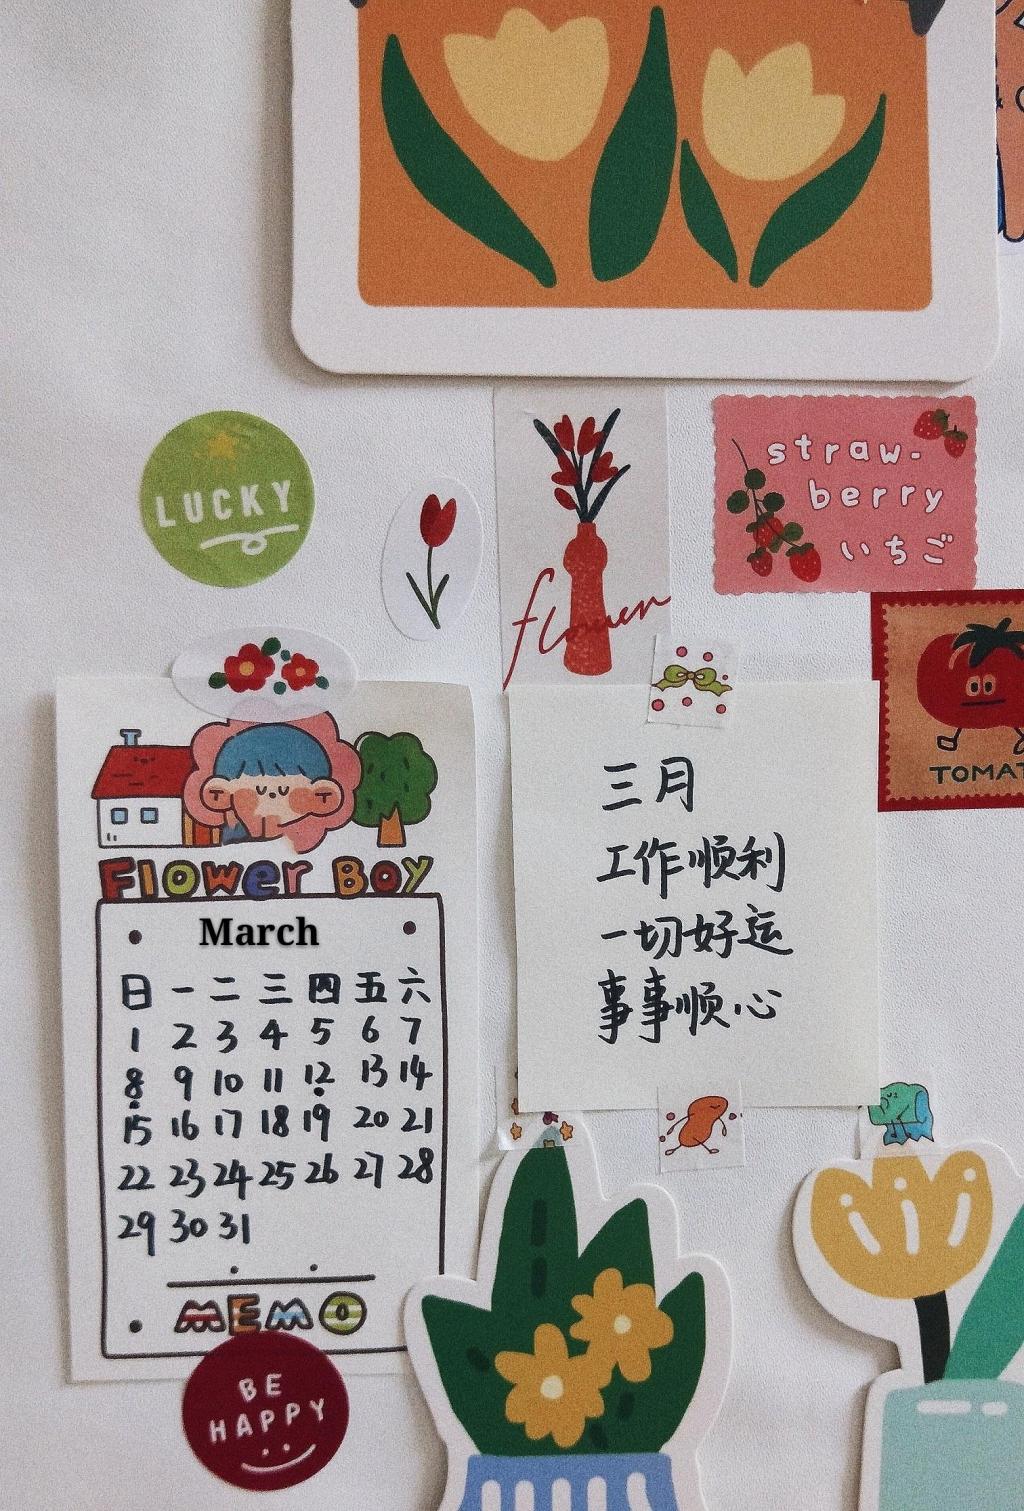 LUCKY
flower
straw-
berry
いちご
TOMAT
Flower Boy
March
日 一 二 三 四 五 六
1 2 3 4 5 6 7
8 9 10 11 12 13 14
15 16 17 18 19 20 21
22 23 24 25 26 27 28
29 30 31
MEMO
BE
HAPPY
三月
工作顺利
一切好运
事事顺心